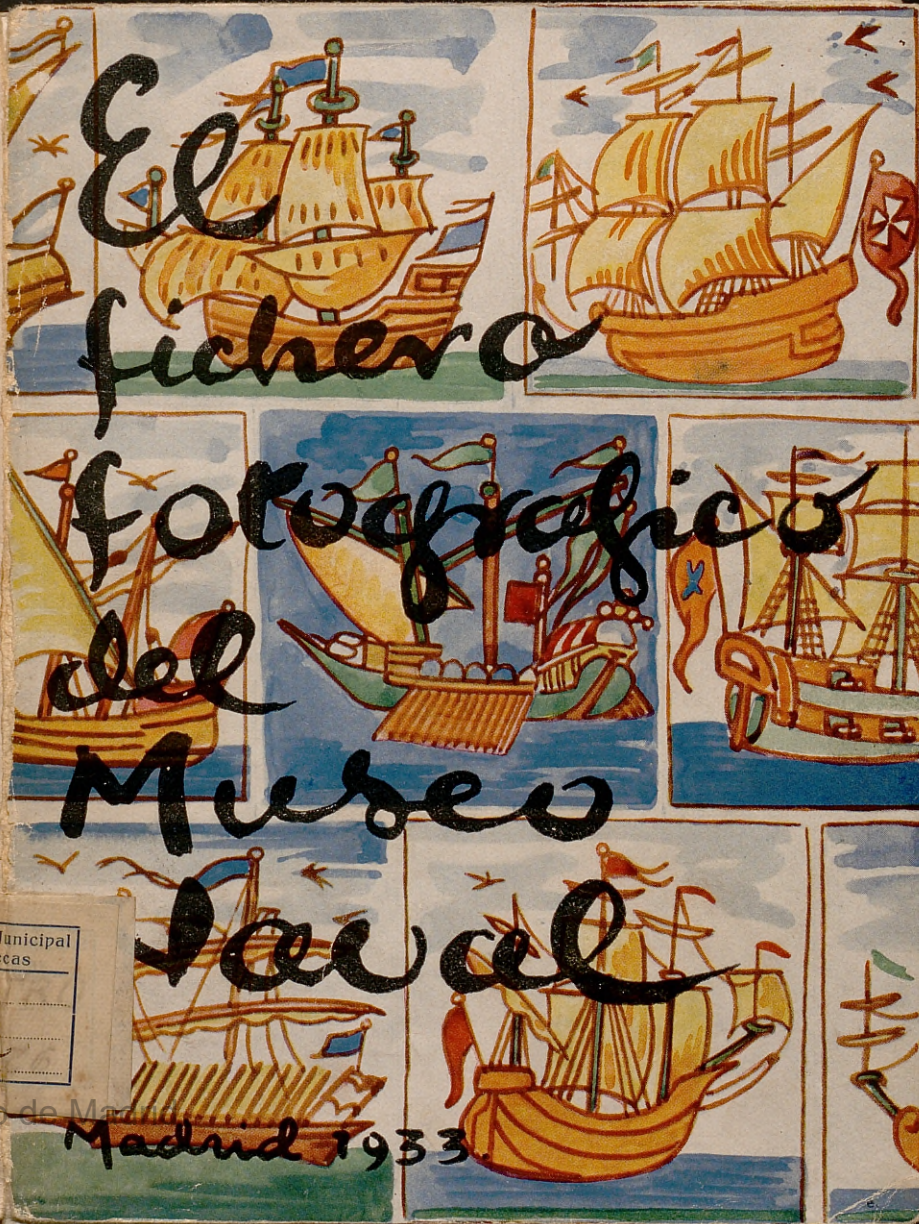 El
fichero
fotografico
del
Museo
Naval
Municipal
cas
o de Madrid
Madrid 1933